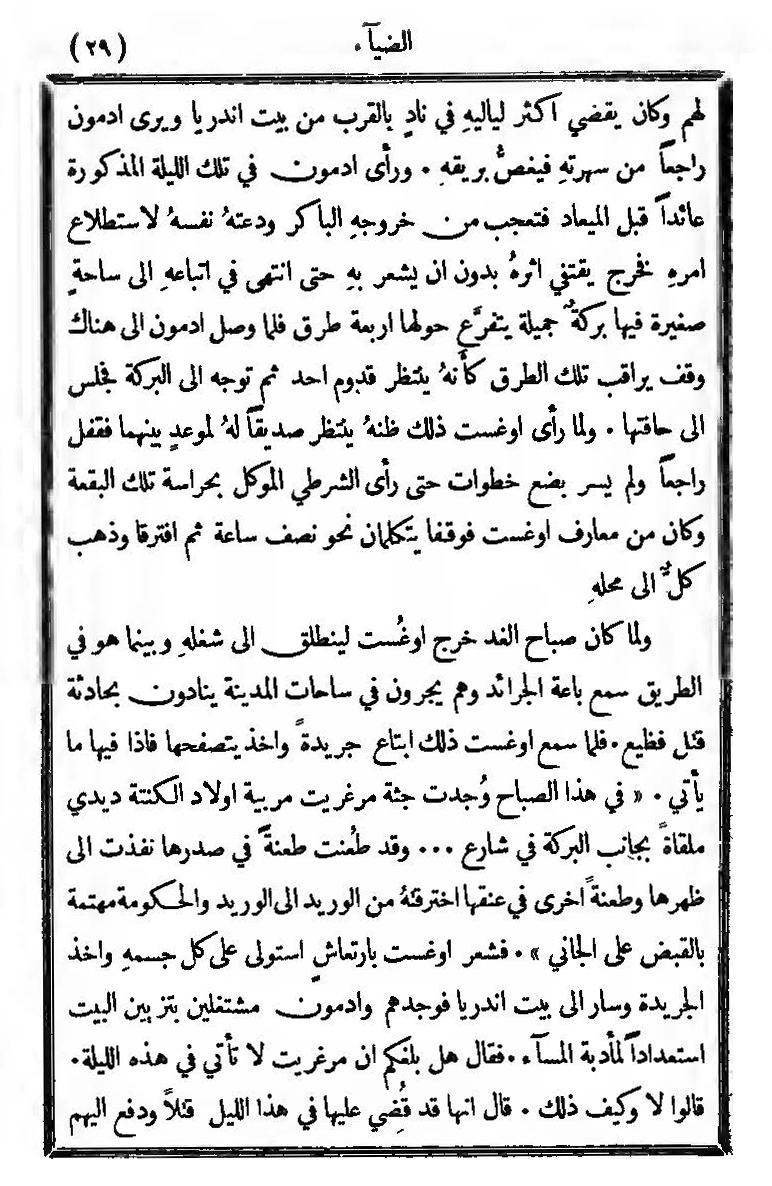 الضيآء
(٢٩)
لهم وكان يقضي اكثر لياليهِ في نادٍ بالقرب من بيت اندريا ويرى ادمون
راجعاً من سهرتهِ فيغصُّ بريقهِ . ورأى ادمون في تلك الليلة المذكورة
عائداً قبل الميعاد فتعجب من خروجهِ الباكر ودعتهُ نفسهُ لاستطلاع
امرهِ فخرج يقتفي اثرهُ بدون ان يشعر بهِ حتى انتهى في اتباعهِ الى ساحةٍ
صغيرة فيها بركةٌ جميلة يتفرَّع حولها اربعة طرق فلما وصل ادمون الى هناك
وقف يراقب تلك الطرق كأنهُ ينتظر قدوم احد ثم توجه الى البركة فجلس
الى حافتها . ولما رأى اوغست ذلك ظنهُ ينتظر صديقاً لهُ لموعدٍ بينهما فقفل
راجعاً ولم يسر بضع خطوات حتى رأى الشرطي الموكل بحراسة تلك البقعة
وكان من معارف اوغست فوقفا يتكلمان نحو نصف ساعة ثم افترقا وذهب
كلٌّ الى محلهِ
ولما كان صباح الغد خرج اوغُست لينطلق الى شغلهِ وبينما هو في
الطريق سمع باعة الجرائد وهم يجرون في ساحات المدينة ينادون بحادثة
قتل فظيع . فلما سمع اوغست ذلك ابتاع جريدةً واخذ يتصفحها فاذا فيها ما
يأتي . « في هذا الصباح وُجدت جثة مرغريت مربية اولاد الكنتة ديدي
ملقاةً بجانب البركة في شارع ... وقد طُعنت طعنةً في صدرها نفذت الى
ظهرها وطعنةً اخرى في عنقها اخترقتهُ من الوريد الى الوريد والحكومة مهتمة
بالقبض على الجاني » . فشعر اوغست بارتعاشٍ استولى على كل جسمهِ واخذ
الجريدة وسار الى بيت اندريا فوجدهم وادمون مشتغلين بتزيين البيت
استعداداً لمأدبة المسآء . فقال هل بلغكم ان مرغريت لا تأتي في هذه الليلة .
قالوا لا وكيف ذلك . قال انها قد قُضِي عليها في هذا الليل قتلاً ودفع اليهم